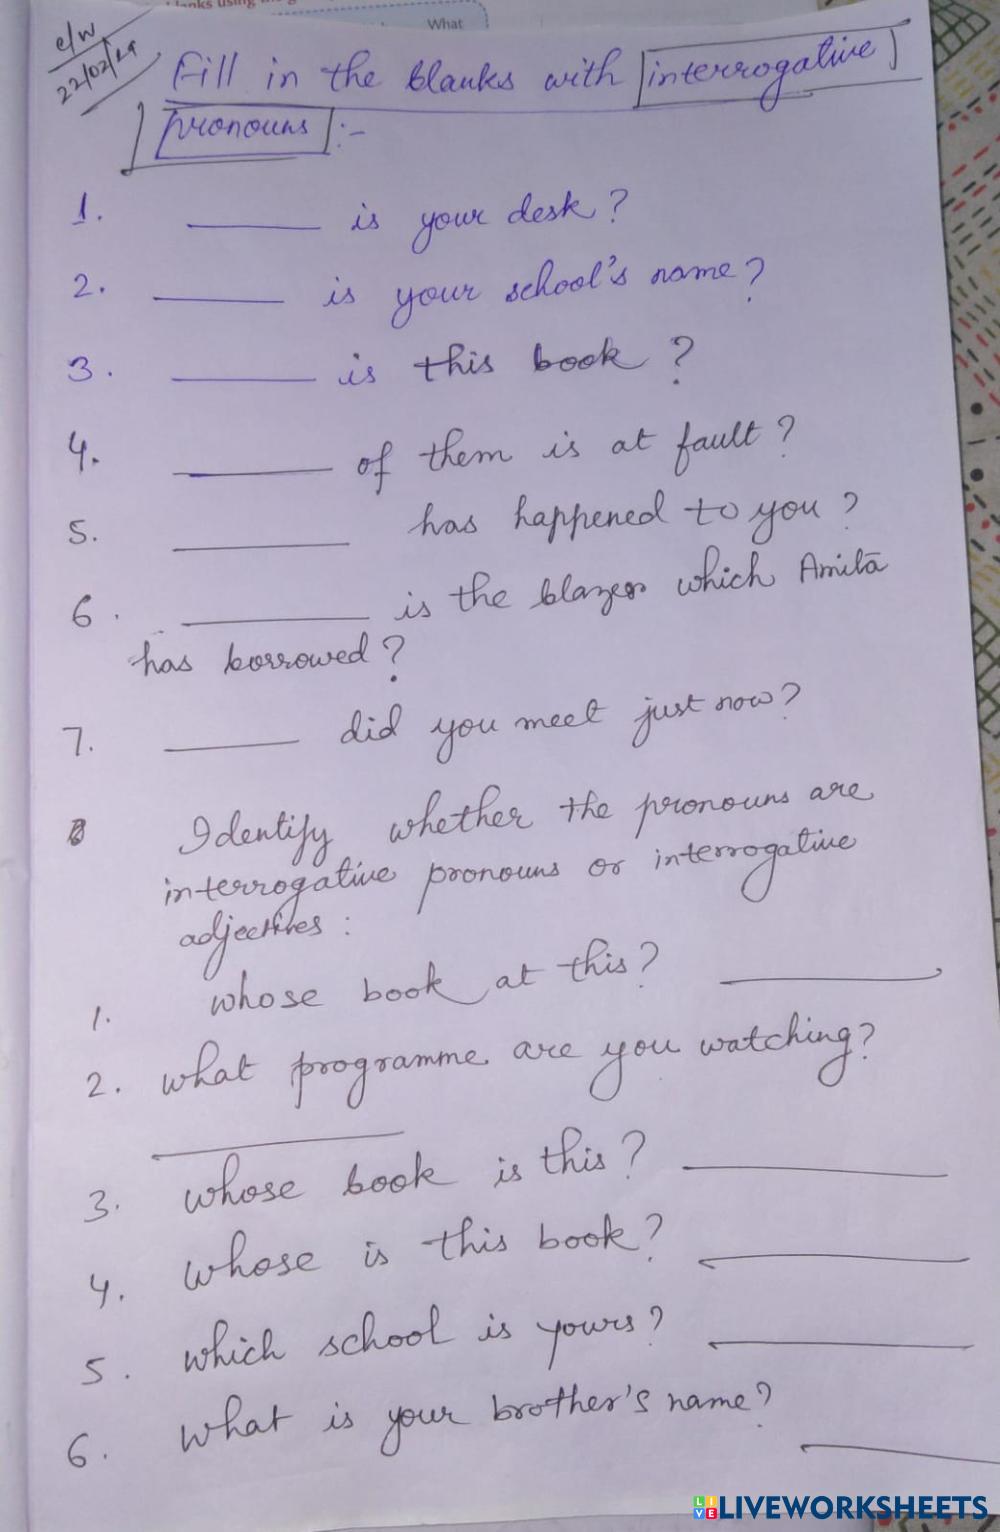 What
c/w
22/02/24
Fill in the blanks with interrogative
pronouns :-
1. ______ is your desk?
2. ______ is your school's name?
3. ______ is this book?
4. ______ of them is at fault?
5. ______ has happened to you?
6. ______ is the blazer which Amita
has borrowed?
7. ______ did you meet just now?
B Identify whether the pronouns are
interrogative pronouns or interrogative
adjectives :
1. whose book at this? ______
2. what programme are you watching?
______
3. whose book is this? ______
4. whose is this book? ______
5. which school is yours? ______
6. what is your brother's name? ______
LIVEWORKSHEETS